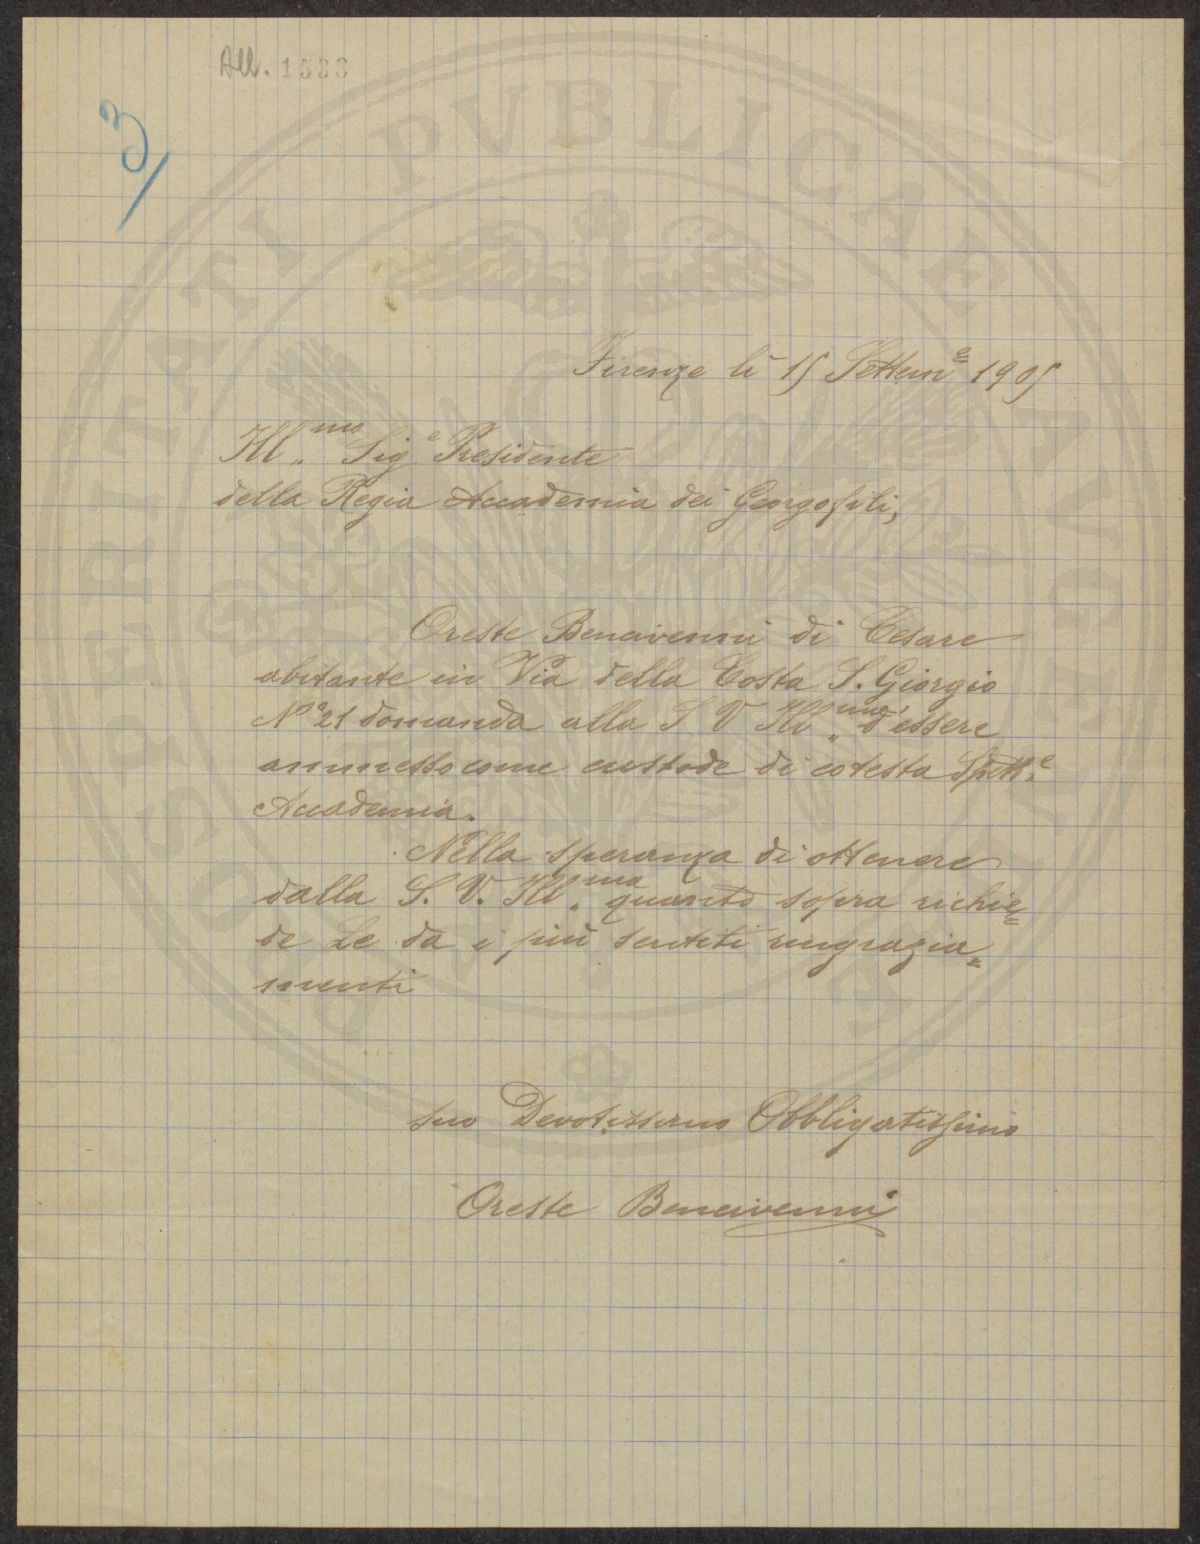 All. 1588
3/
Firenze li 15 Settem.e 1905
Ill.mo Sig.e Presidente
della Regia Accademia dei Georgofili,
Oreste Bencivenni di Cesare
abitante in Via della Costa S. Giorgio
No 21 domanda alla S V Ill.ma d'essere
ammesso come custode di cotesta Spett.e
Accademia.
Nella speranza di ottenere
dalla S. V. Ill.ma quanto sopra richie=
de Le da i più sentiti ringrazia=
menti
suo Devotissimo Obbligatissimo
Oreste Bencivenni
PROSPERITATI PVBLICAE AVGENDAE